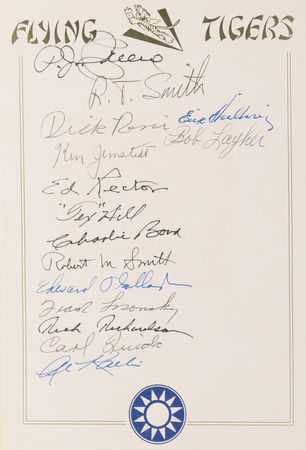 FLYING TIGERS
R. T. Smith
Dick Rossi
Erik Shilling
Ken Jernstedt
Bob Layher
Ed Rector
"Tex" Hill
Charlie Bond
Robert M Smith
Edward
Frank Losonsky
Rich Richardson
Carl